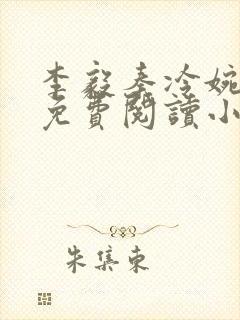 李毅秦冷婉
免費閱讀小
朱集东